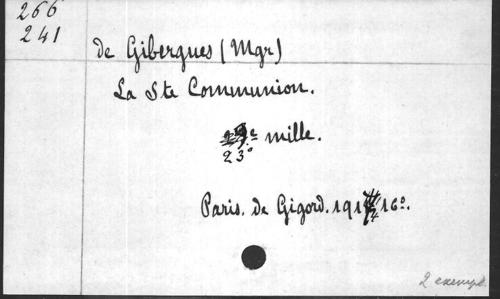 266
241
de Gibergues (Mgr)
La Ste Communion.
mille.
23º
Paris. de Gigord. 191 16º.
2 exempl.